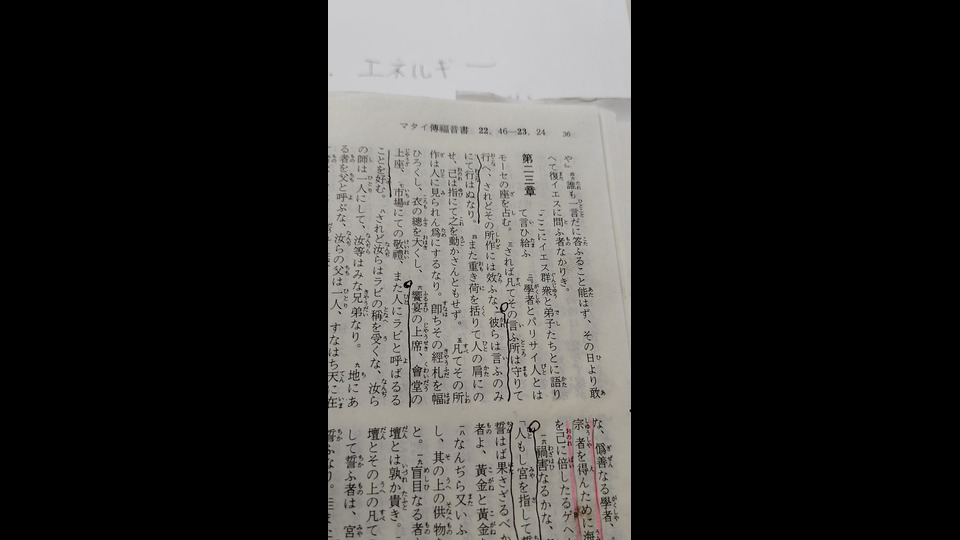 エネルギー
マタイ傳福音書 22, 46—23, 24 36
や』誰も一言だに答ふること能はず、その日より敢
へて復イエスに問ふ者なかりき。
第二三章
一ここにイエス群衆と弟子たちとに語り
て言ひ給ふ 二『學者とパリサイ人とは
モーセの座を占む。 三されば凡てその言ふ所は守りて
行へ、されどその所作には效ふな、彼らは言ふのみ
にて行はぬなり。 四また重き荷を括りて人の肩にの
せ、己は指にて之を動かさんともせず。 五凡てその所
作は人に見られん爲にするなり。即ちその經札を幅
ひろくし、衣の總を大くし、 六饗宴の上席、會堂の
上座、 七市場にての敬禮、また人にラビと呼ばるる
ことを好む。 八されど汝らはラビの稱を受くな、汝ら
の師は一人にして、汝等はみな兄弟なり。 九地にあ
る者を父と呼ぶな、汝らの父は一人、すなはち天に在
な、僞善なる學者、
宗者を得んために海
を己に倍したるゲヘ
一六禍害なるかな、
『人もし宮を指して誓
誓はば果さざるべか
者よ、黄金と黄金
一八なんぢら又いふ
し、其の上の供物
と。 一九盲目なる者
壇とは孰か貴き。
壇とその上の凡て
して誓ふ者は、宮
誓ふなり。